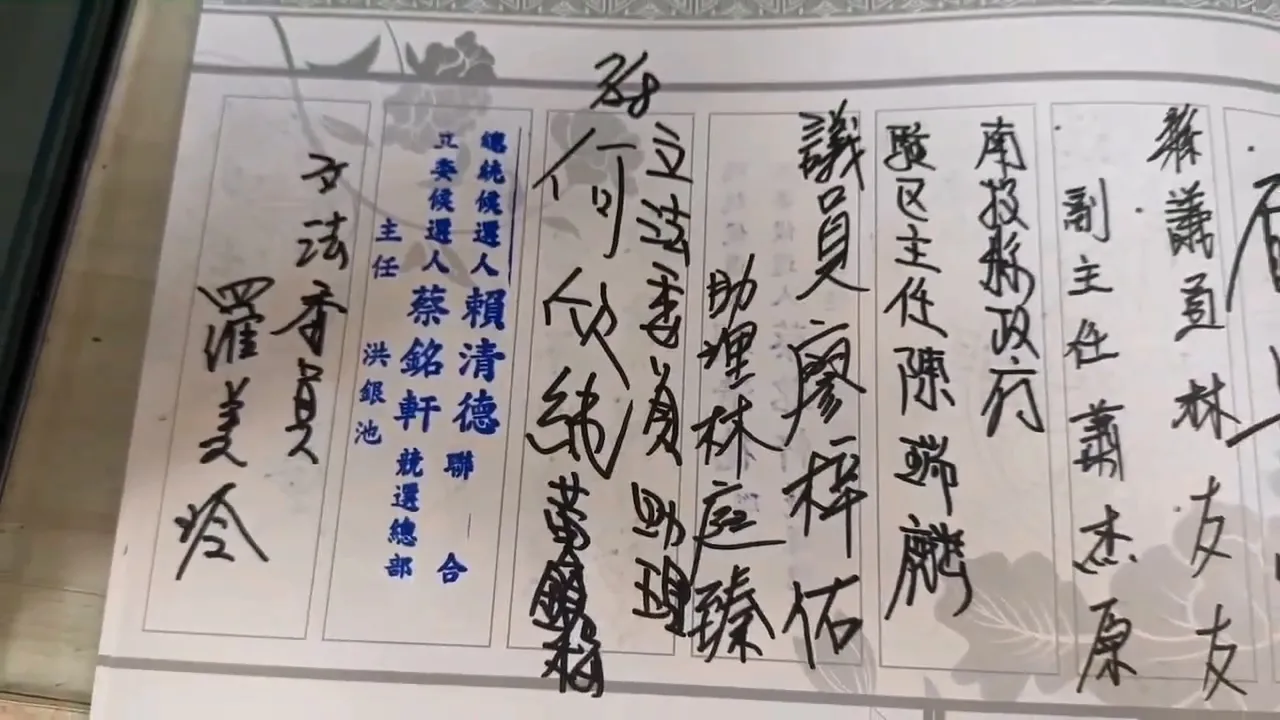 縣議員林友友
副主任蕭杰原
南投縣政府
駐区主任陳瑞麟
議員廖梓佑
助理林庭臻
立法委員助理
何欣純
總統候選人賴清德
立委候選人蔡銘軒
聯合
競選總部
主任
洪銀池
立法委員
羅美玲